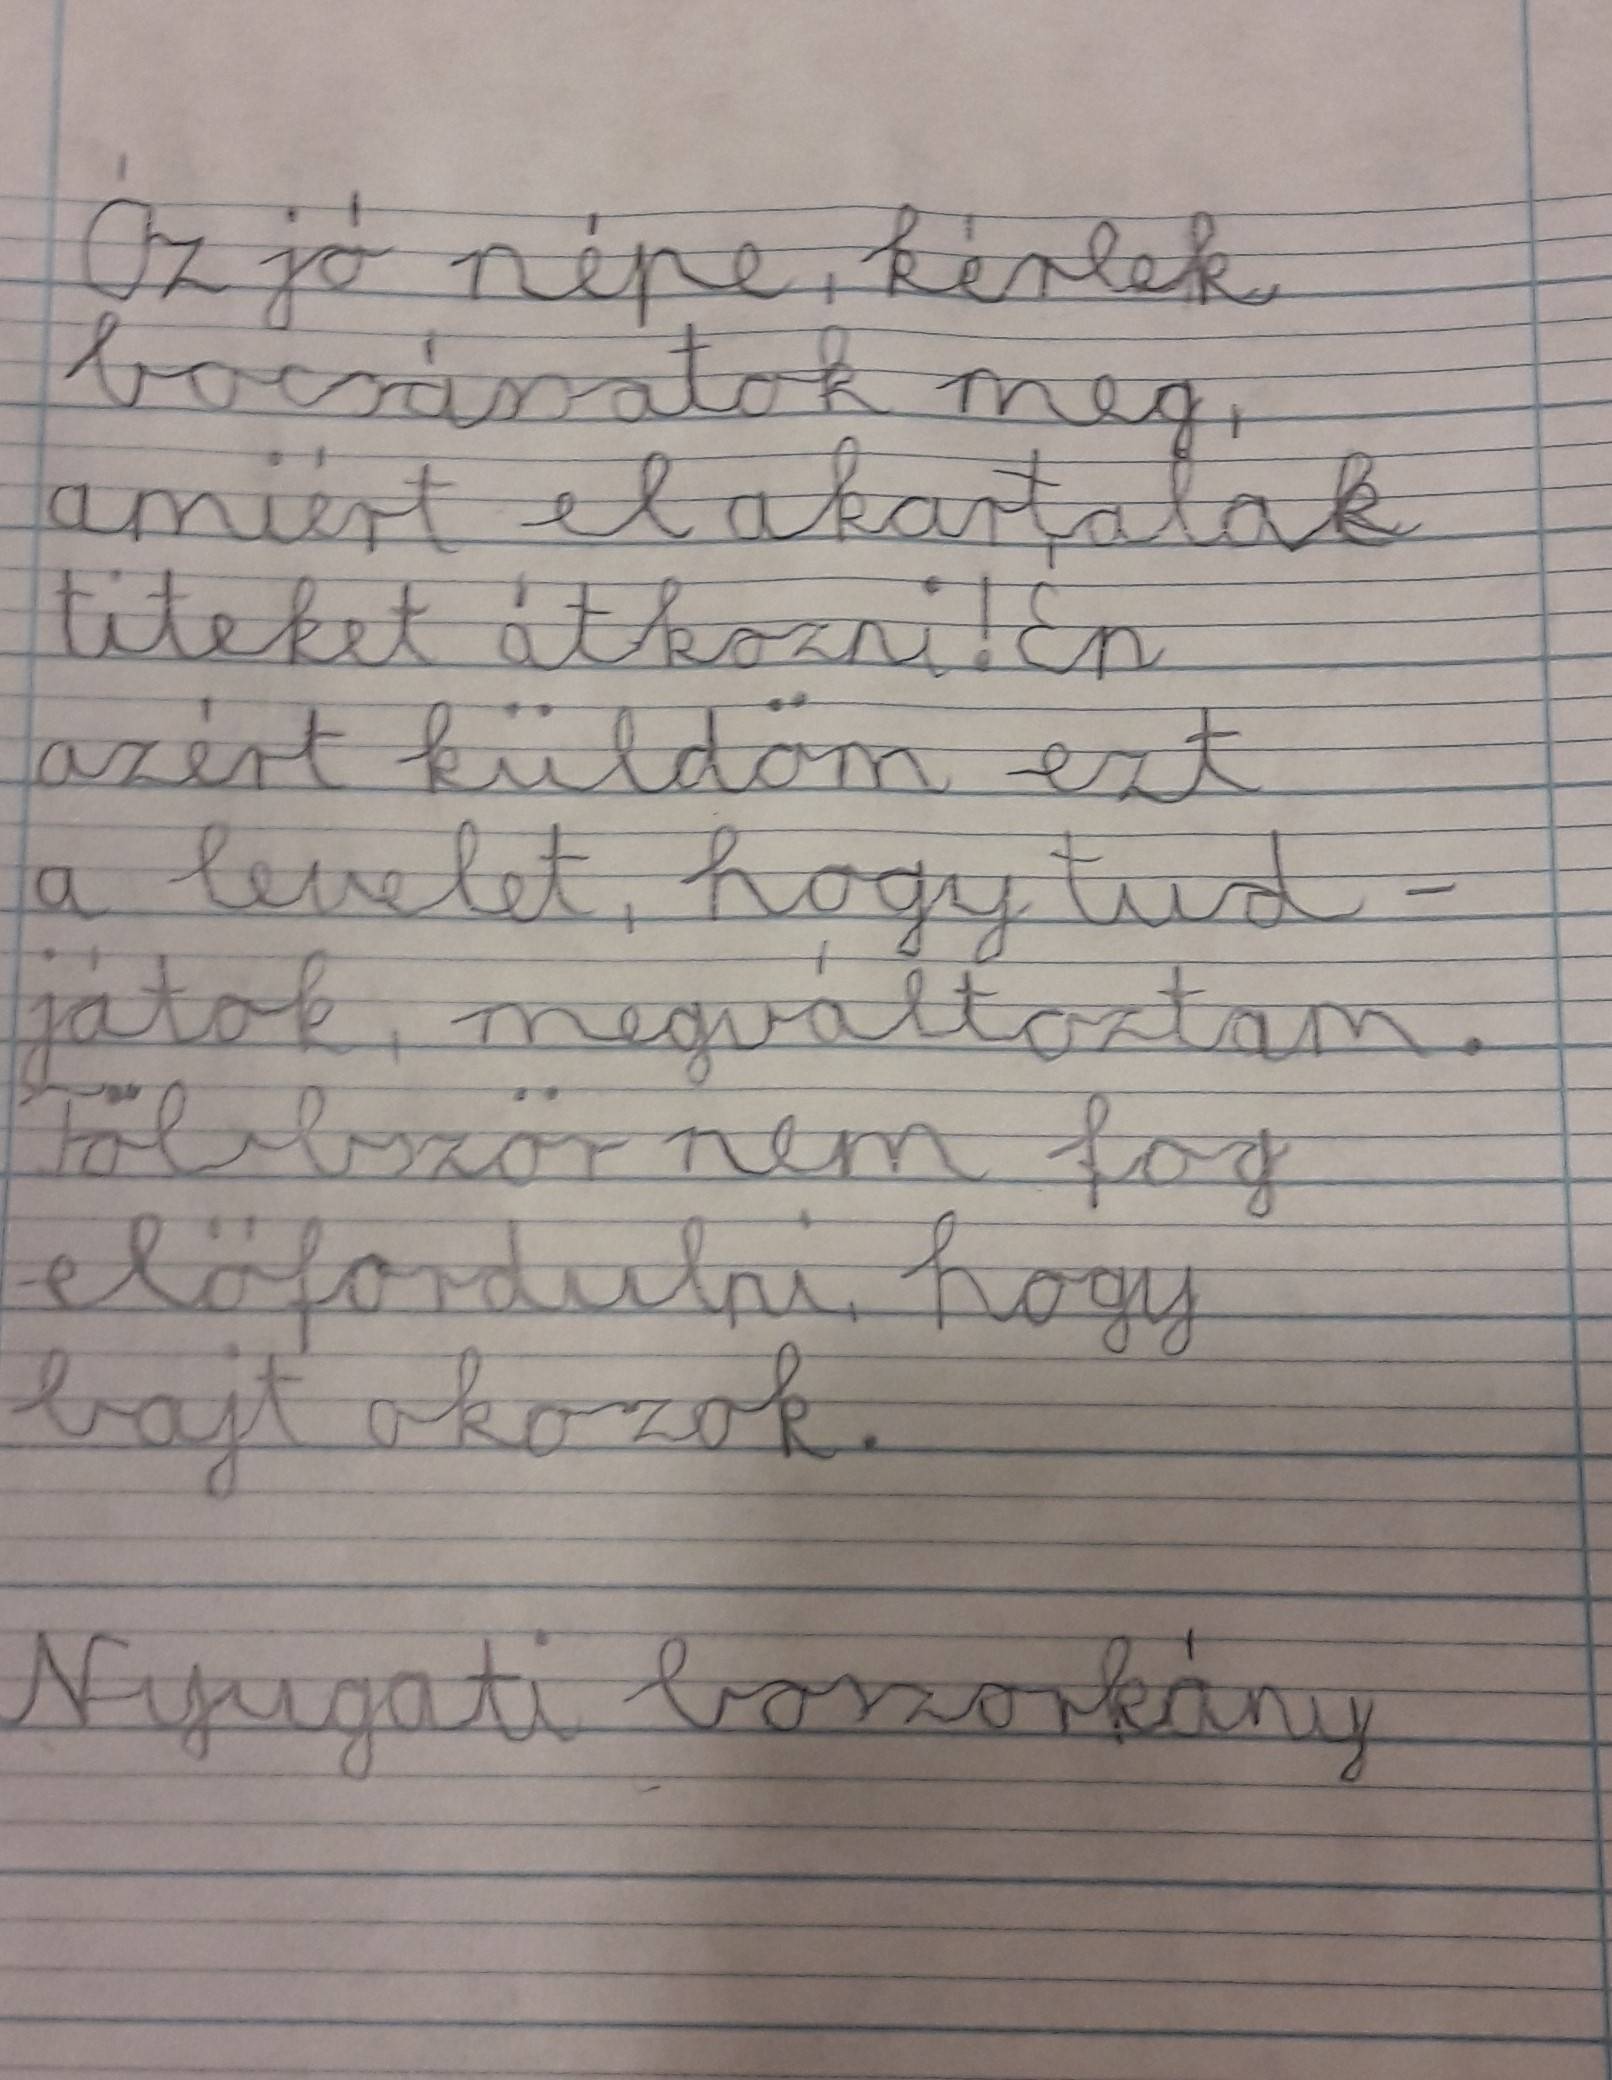 Óz jó népe, kérlek
bocsássatok meg,
amiért el akartalak
titeket átkozni! Én
azért küldöm ezt
a levelet, hogy tud-
játok, megváltoztam.
Töbször nem fog
előfordulni, hogy
bajt okozok.
Nyugati boszorkány